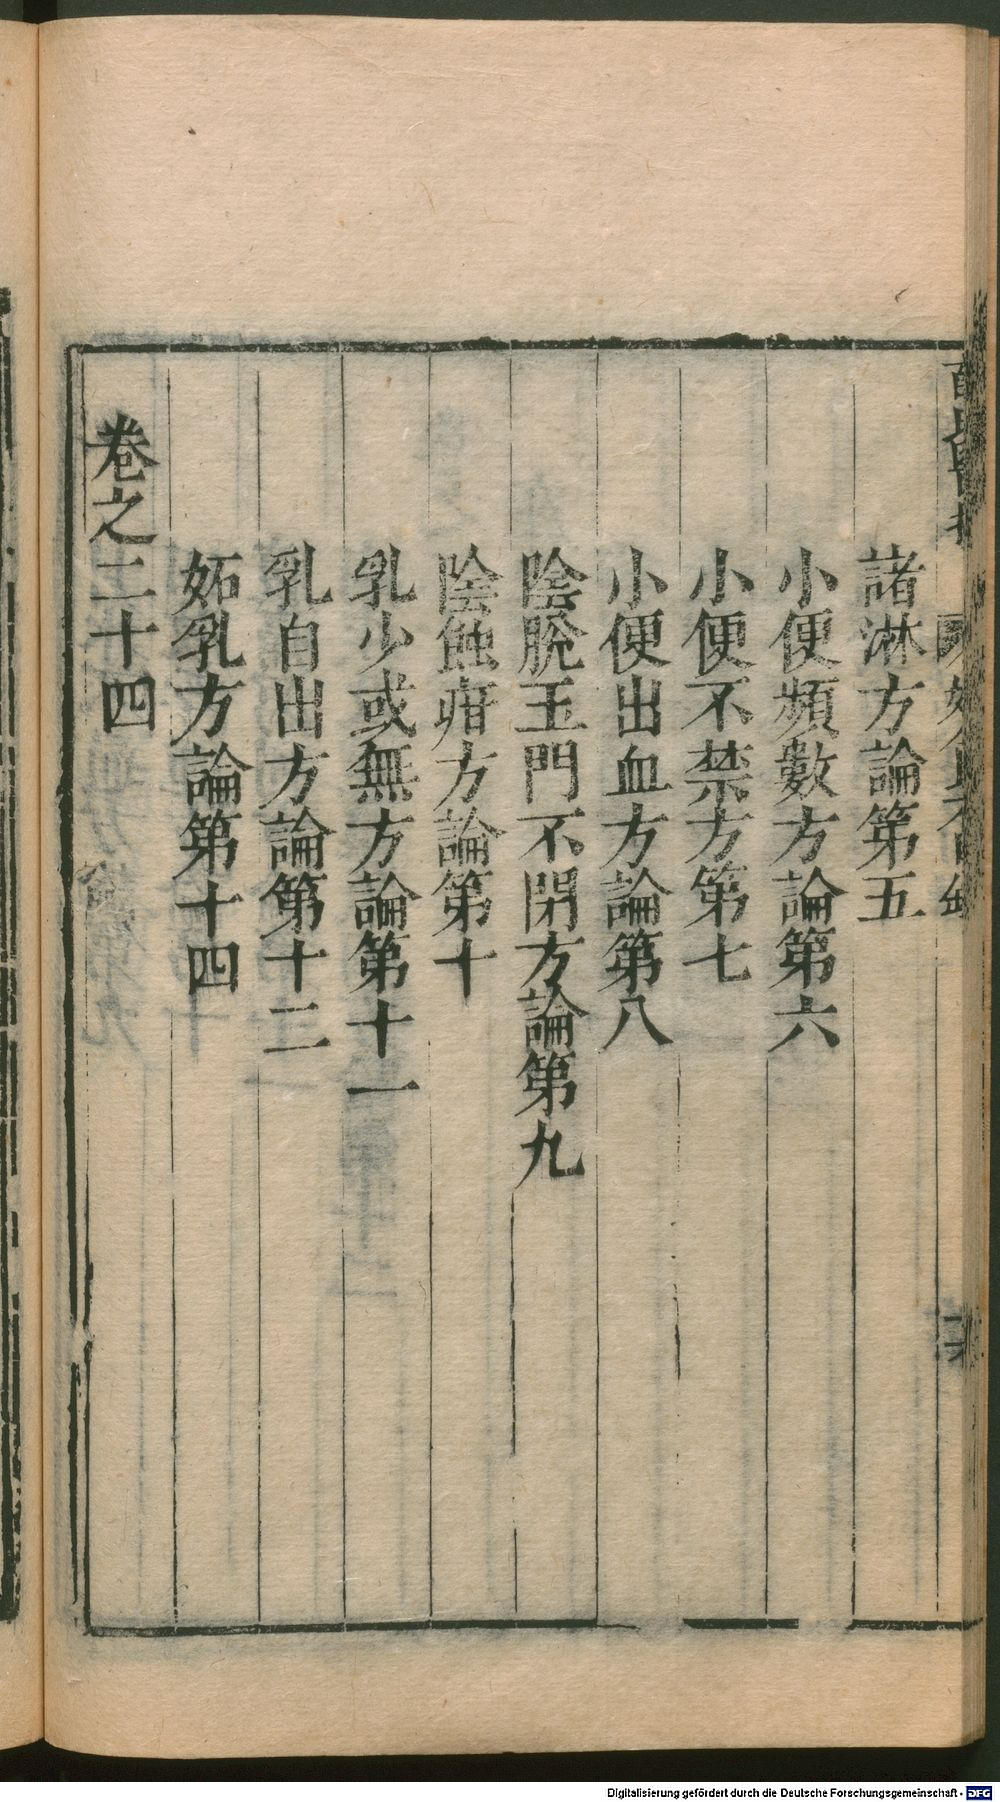 諸淋方論第五
小便頻數方論第六
小便不禁方第七
小便出血方論第八
陰脫玉門不閉方論第九
陰蝕疳方論第十
乳少或無方論第十一
乳自出方論第十二
妬乳方論第十四
卷之二十四
Digitalisierung gefördert durch die Deutsche Forschungsgemeinschaft - DFG